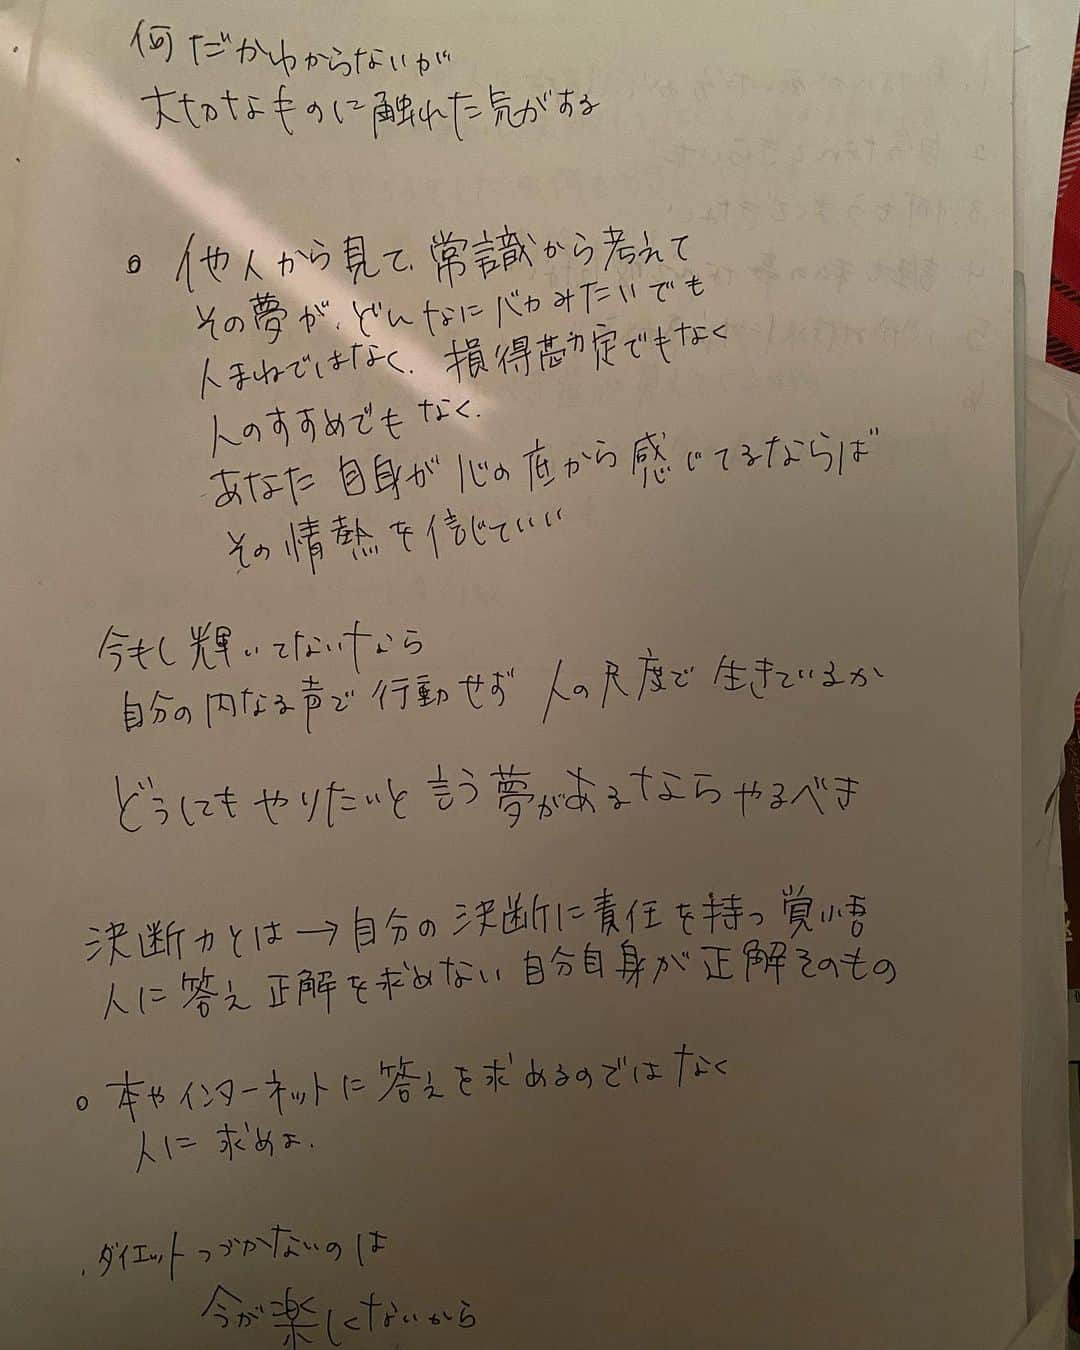 何だかわからないが
大切なものに触れた気がする
○ 他人から見て、常識から考えて
その夢が、どんなにバカみたいでも
人まねではなく、損得勘定でもなく
人のすすめでもなく、
あなた自身が心の底から感じてるならば
その情熱を信じていい
今もし輝いてないなら
自分の内なる声で行動せず 人の尺度で生きているか
どうしてもやりたいと言う夢があるならやるべき
決断力とは→自分の決断に責任を持つ覚悟
人に答え正解を求めない 自分自身が正解そのもの
○ 本やインターネットに答えを求めるのではなく
人に求めよ.
.ダイエットつづかないのは
今が楽しくないから